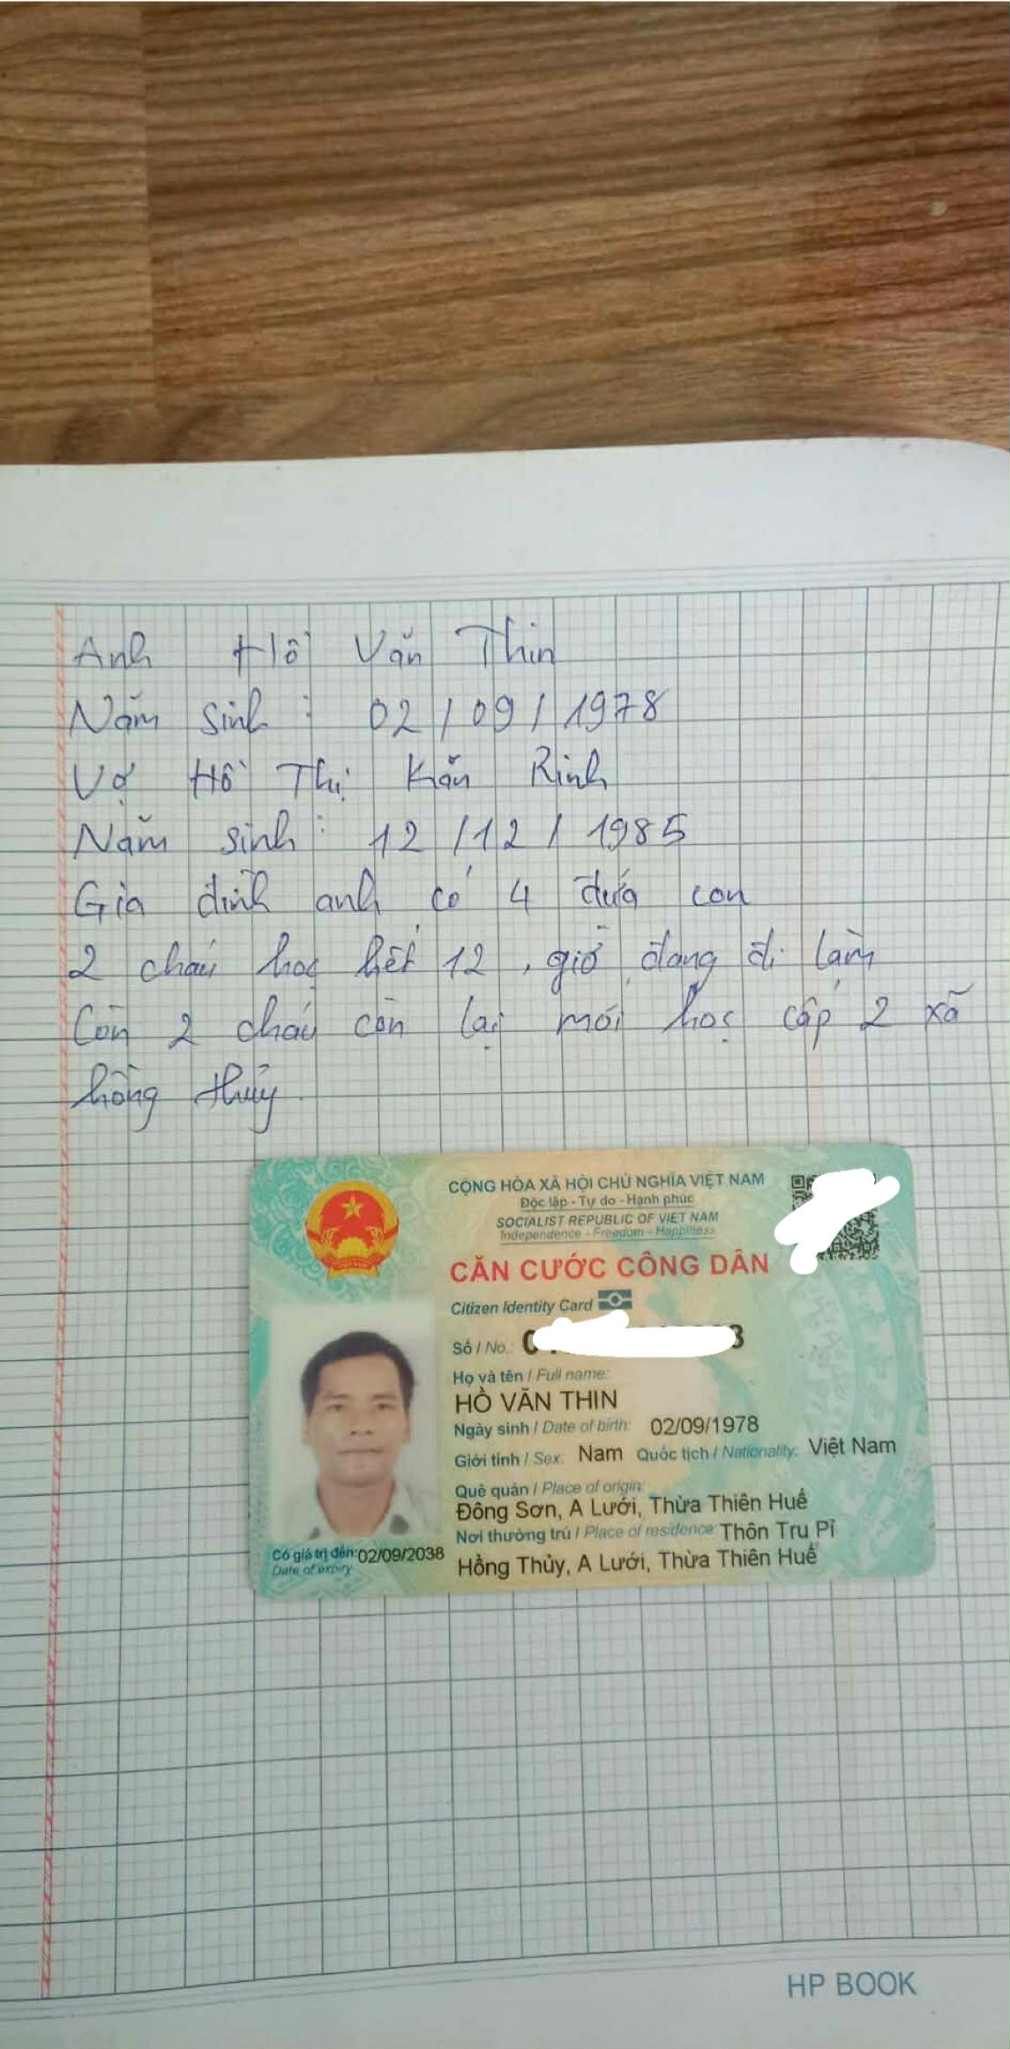 Anh Hồ Văn Thin
Năm sinh : 02/09/1978
Vợ Hồ Thị Kăn Rinh
Năm sinh : 12/12/1985
Gia đình anh có 4 đứa con
2 cháu học hết 12, giờ đang đi làm
Còn 2 cháu còn lại mới học cấp 2 xã
hồng thủy.
CỘNG HÒA XÃ HỘI CHỦ NGHĨA VIỆT NAM
Độc lập - Tự do - Hạnh phúc
SOCIALIST REPUBLIC OF VIET NAM
Independence - Freedom - Happiness
CĂN CƯỚC CÔNG DÂN
Citizen Identity Card
Số / No.:
Họ và tên / Full name:
HỒ VĂN THIN
Ngày sinh / Date of birth: 02/09/1978
Giới tính / Sex: Nam Quốc tịch / Nationality: Việt Nam
Quê quán / Place of origin:
Đông Sơn, A Lưới, Thừa Thiên Huế
Nơi thường trú / Place of residence: Thôn Tru Pỉ
Hồng Thủy, A Lưới, Thừa Thiên Huế
Có giá trị đến: 02/09/2038
Date of expiry
HP BOOK